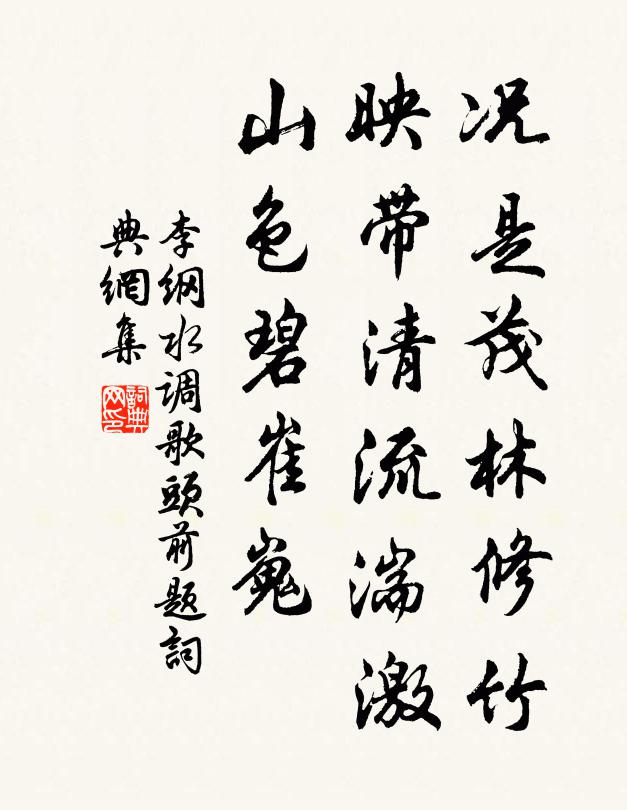 况是茂林修竹
映带清流湍激
山色碧崔嵬
李纲水调歌头前题词
典網集
詞典网印